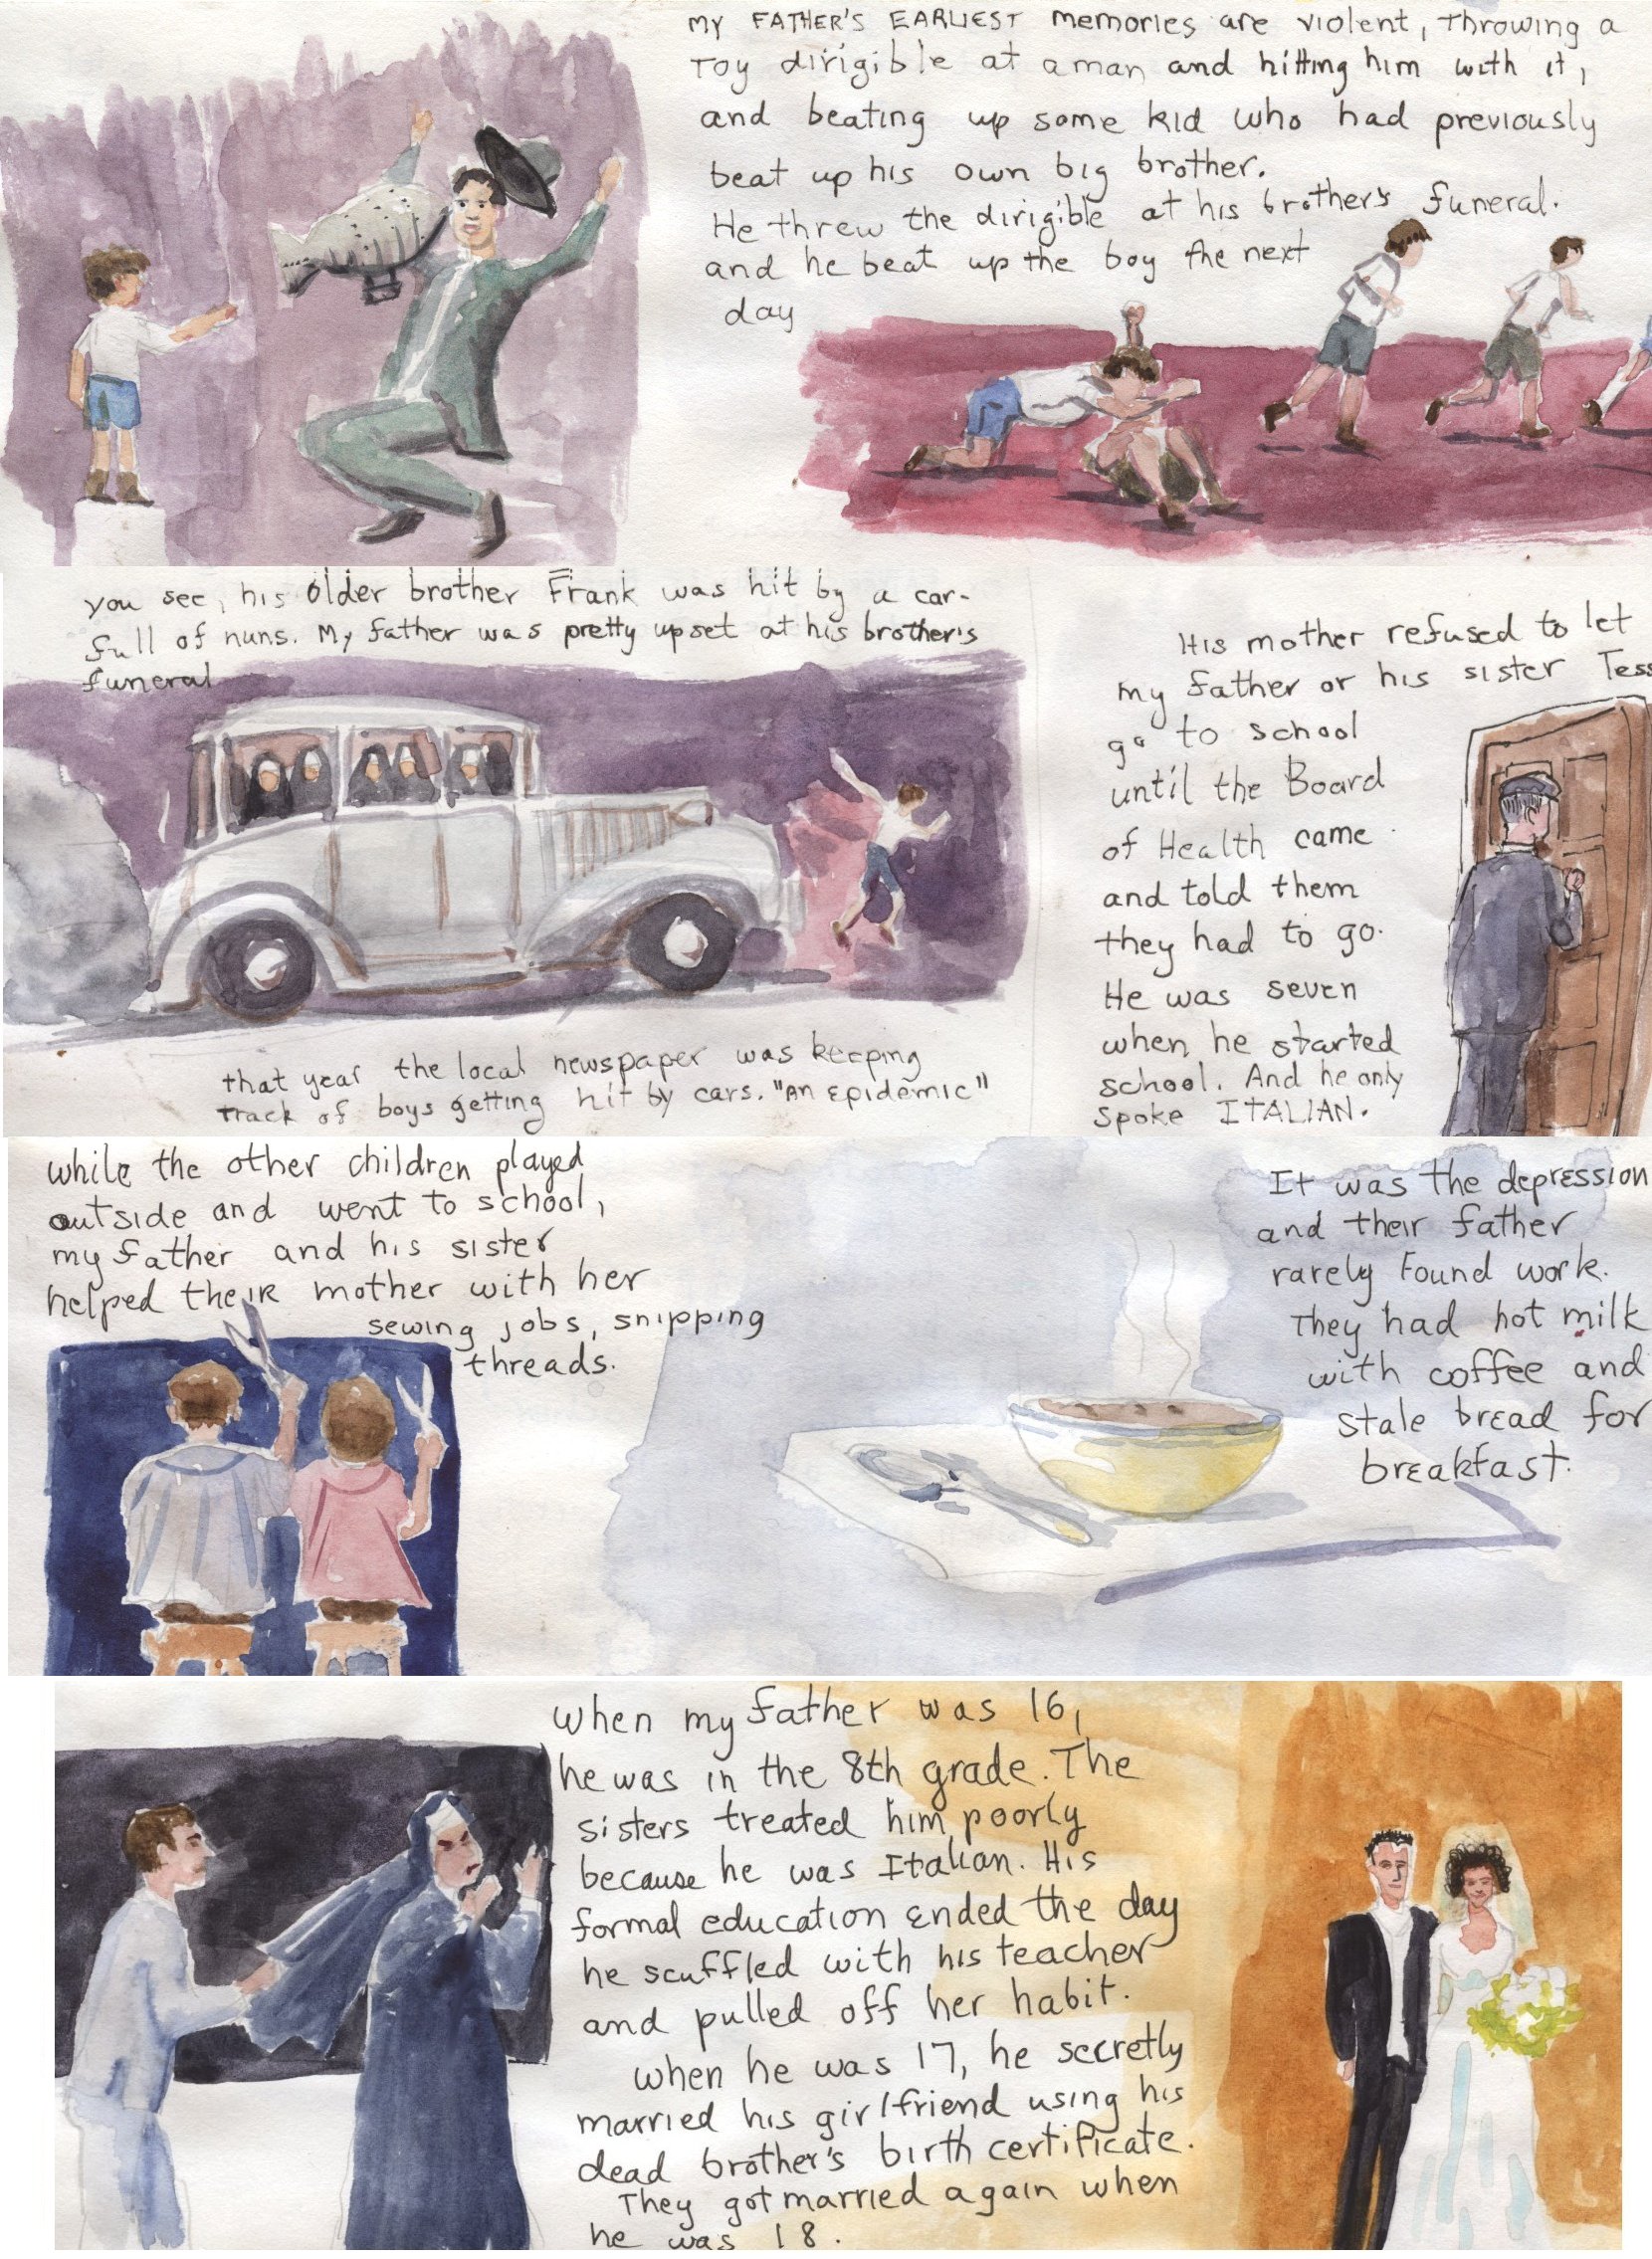 MY FATHER'S EARLIEST memories are violent, Throwing a
Toy dirigible at a man and hitting him with it,
and beating up some kid who had previously
beat up his own big brother.
He threw the dirigible at his brother's funeral.
and he beat up the boy the next
day
you see, his older brother Frank was hit by a car-
full of nuns. My father was pretty upset at his brother's
funeral
that year the local newspaper was keeping
track of boys getting hit by cars. "An Epidemic"
His mother refused to let
my father or his sister Tess
go to school
until the Board
of Health came
and told them
they had to go.
He was seven
when he started
school. And he only
spoke ITALIAN.
while the other children played
outside and went to school,
my father and his sister
helped their mother with her
sewing jobs, snipping
threads.
It was the depression
and their father
rarely found work.
They had hot milk
with coffee and
stale bread for
breakfast.
When my father was 16,
he was in the 8th grade. The
sisters treated him poorly
because he was Italian. His
formal education ended the day
he scuffled with his teacher
and pulled off her habit.
when he was 17, he secretly
married his girlfriend using his
dead brother's birth certificate.
They got married again when
he was 18.